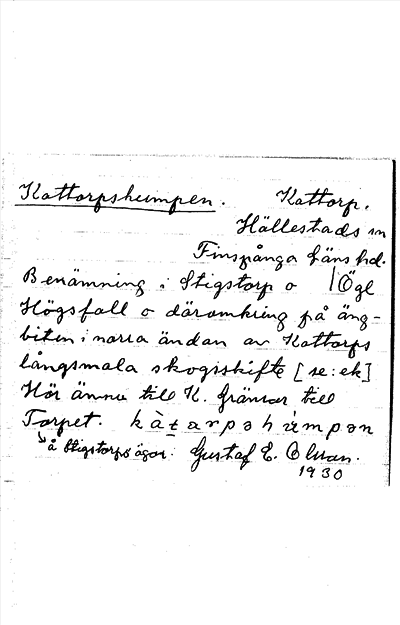 Kattorpshumpen. Kattorp.
Hällestads sn
Finspånga läns hd.
Benämning i Stigstorp o Ögl
Högsfall o däromkring på äng-
biten i norra ändan av Kattorps
långsmala skogsskifte [se: ek]
Hör ännu till K. Gränsar till
Torpet. 
å Stigstorps ägor. Gustaf E. Olsson.
1930